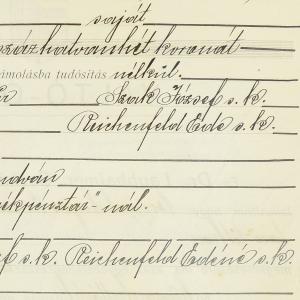 saját
százhatvanhét koronát
ámolásba tudósítás nélkül.
Szak József s. k.
Reichenfeld Ede s. k.
ndván
ékpénztár"-nál.
ef s. k. Reichenfeld Edéné s. k.